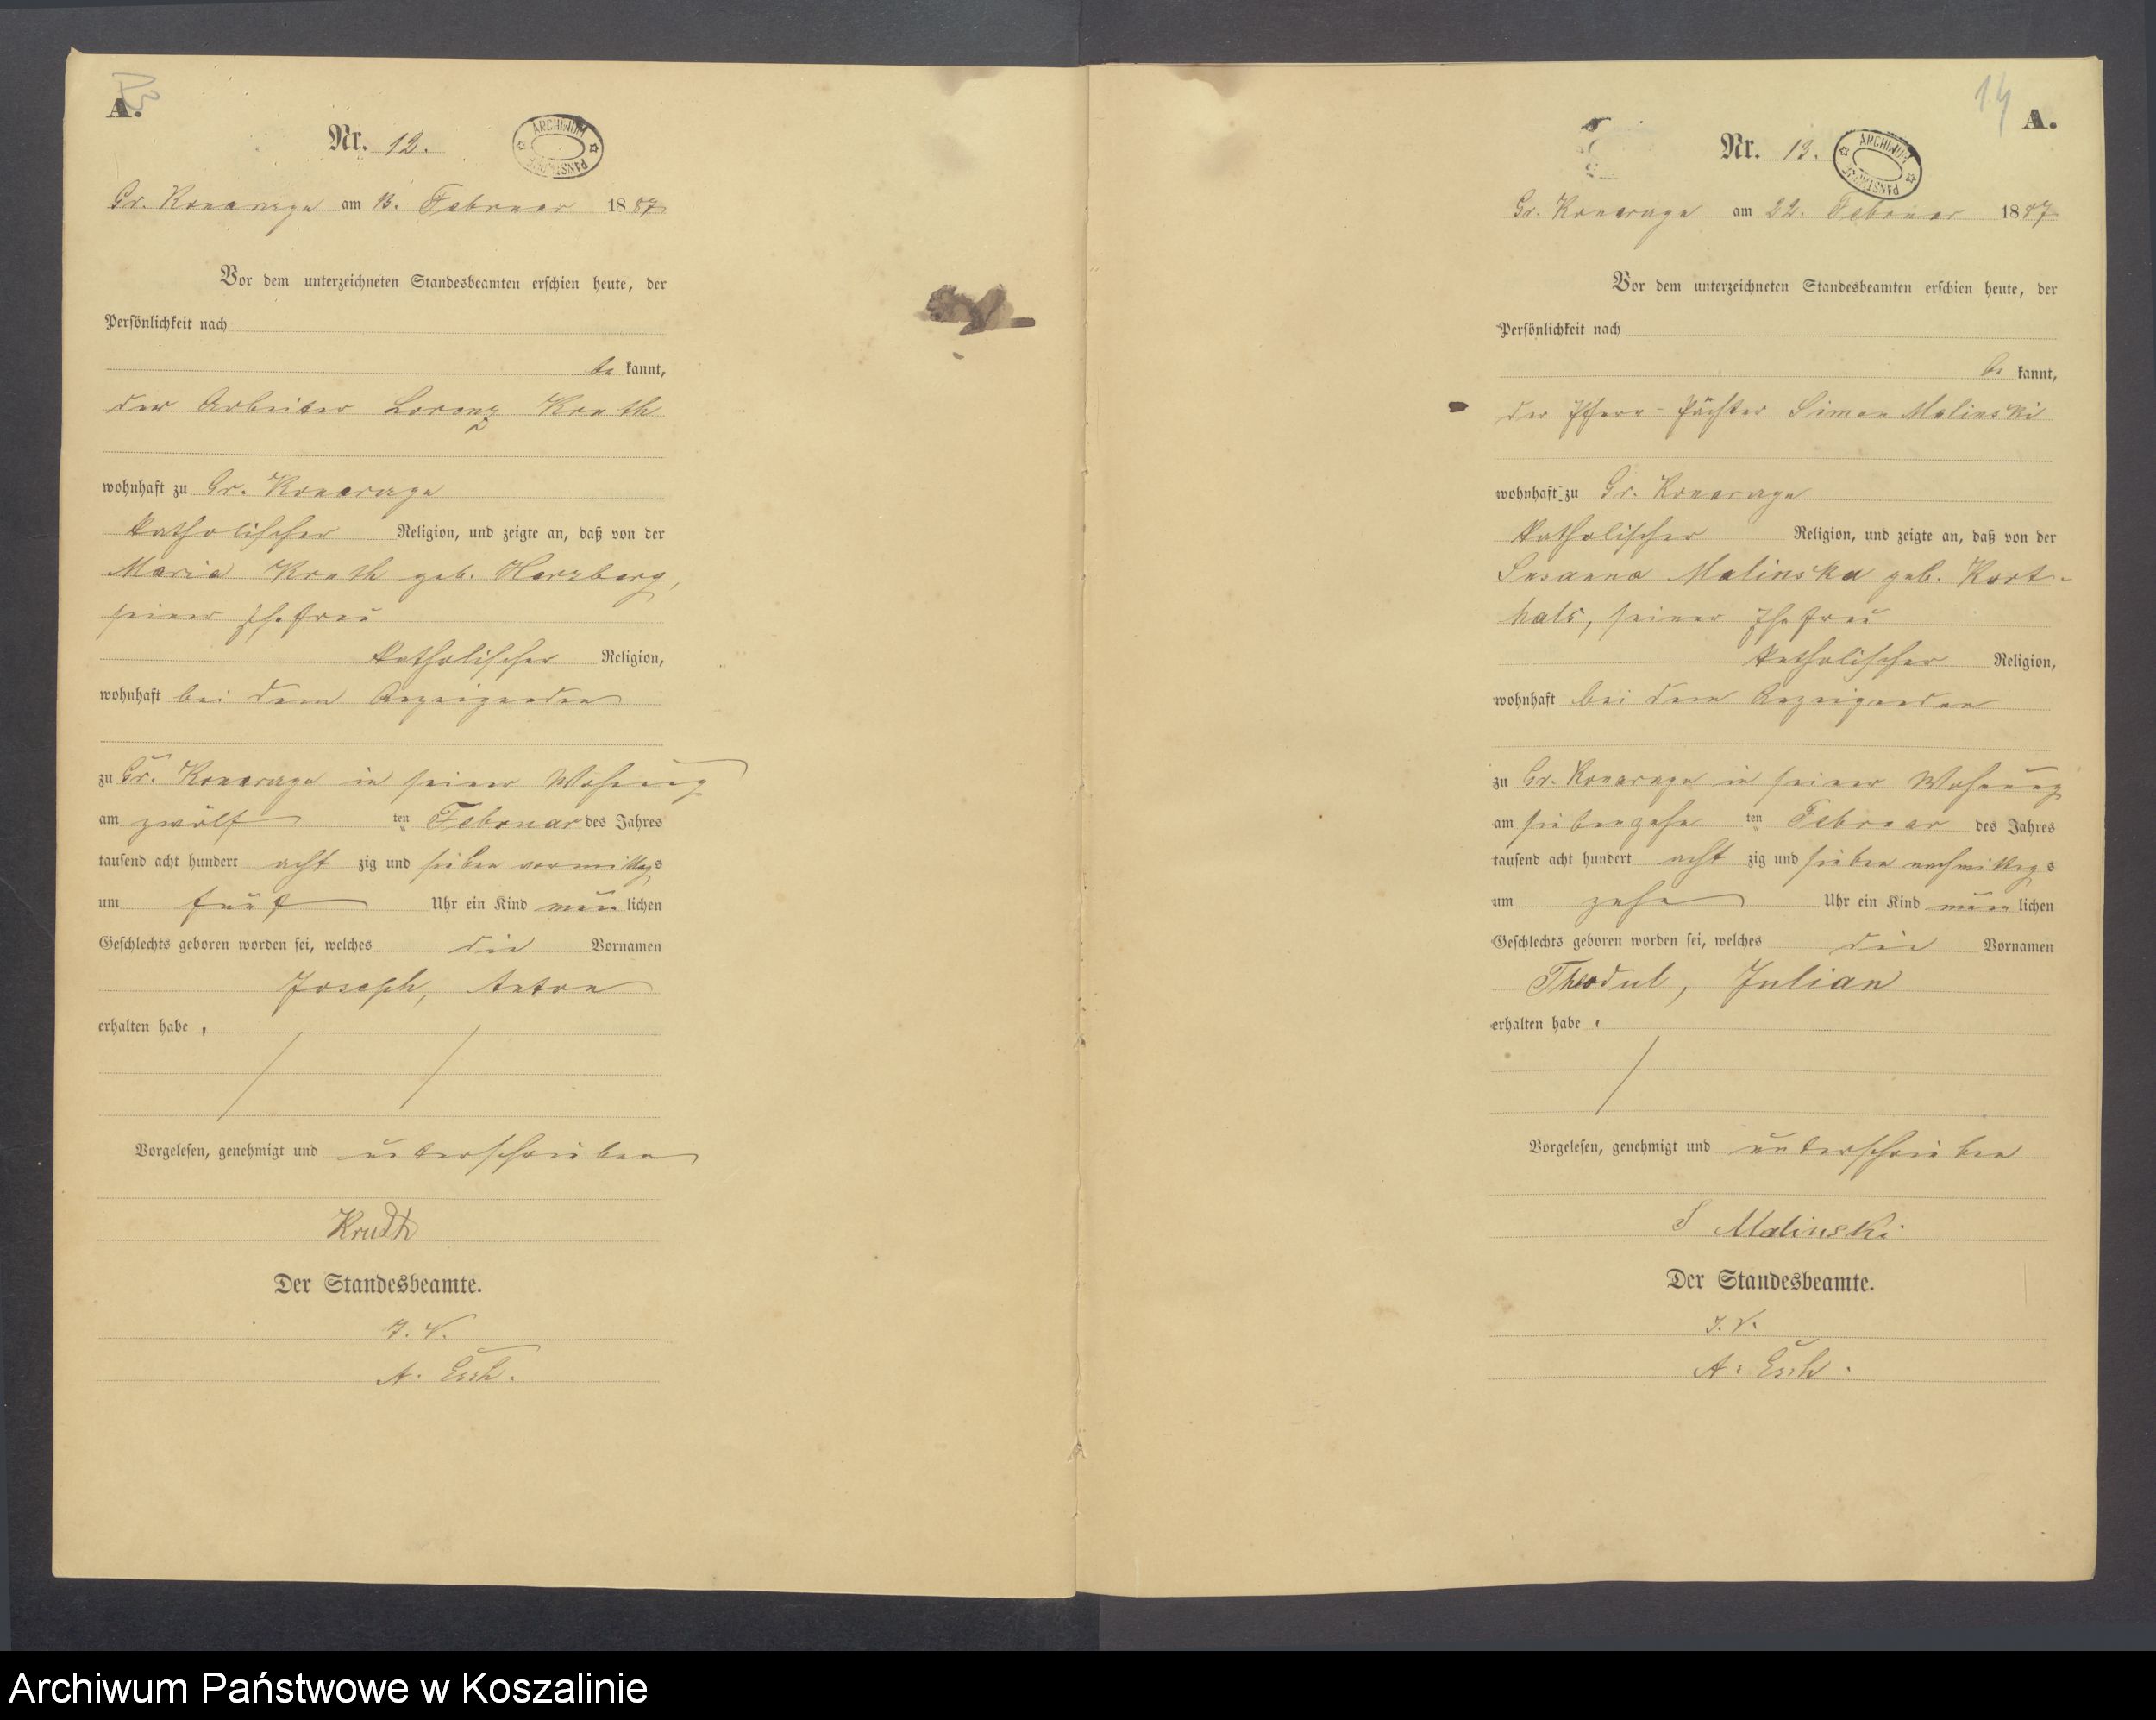 A.
13
Nr. 12.
ARCHIWUM PAŃSTWOWE
Gr. Konarczyn am 13. Februar 1887
Vor dem unterzeichneten Standesbeamten erschien heute, der
Persönlichkeit nach
be kannt,
der Arbeiter Lorenz Knuth
wohnhaft zu Gr. Konarczyn
katholischer Religion, und zeigte an, daß von der
Maria Knuth geb. Herzberg,
seiner Ehefrau
katholischer Religion,
wohnhaft bei dem Anzeigenden
zu Gr. Konarczyn in seiner Wohnung
am zwölf ten Februar des Jahres
tausend acht hundert acht zig und sieben vormittags
um fünf Uhr ein Kind männlichen
Geschlechts geboren worden sei, welches die Vornamen
Joseph, Anton
erhalten habe,
Vorgelesen, genehmigt und unterschrieben
Der Standesbeamte.
J. V.
A. Esch.
14
A.
Nr. 13.
ARCHIWUM PAŃSTWOWE
Gr. Konarczyn am 22. Februar 1887
Vor dem unterzeichneten Standesbeamten erschien heute, der
Persönlichkeit nach
be kannt,
der Pfarr-Pächter Simon Malinski
wohnhaft zu Gr. Konarczyn
katholischer Religion, und zeigte an, daß von der
Susanna Malinska geb. Kort-
hals, seiner Ehefrau
katholischer Religion,
wohnhaft bei dem Anzeigenden
zu Gr. Konarczyn in seiner Wohnung
am siebenzehn ten Februar des Jahres
tausend acht hundert acht zig und sieben nachmittags
um zehn Uhr ein Kind männlichen
Geschlechts geboren worden sei, welches die Vornamen
Theodul, Julian
erhalten habe,
Vorgelesen, genehmigt und unterschrieben
S Malinski
Der Standesbeamte.
J. V.
A. Esch.
Archiwum Państwowe w Koszalinie